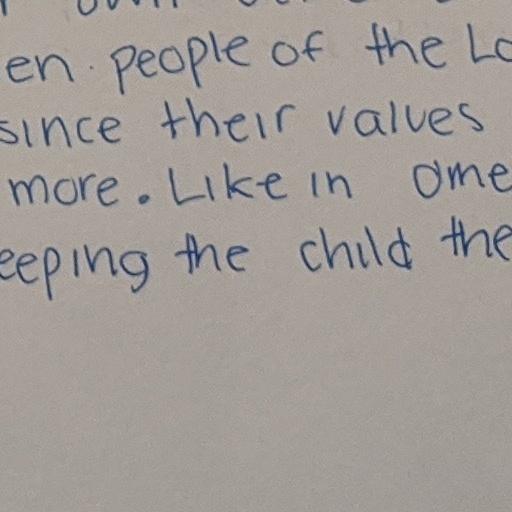 own
en. people of the Lo
since their values
more. Like in Ome
eeping the child the